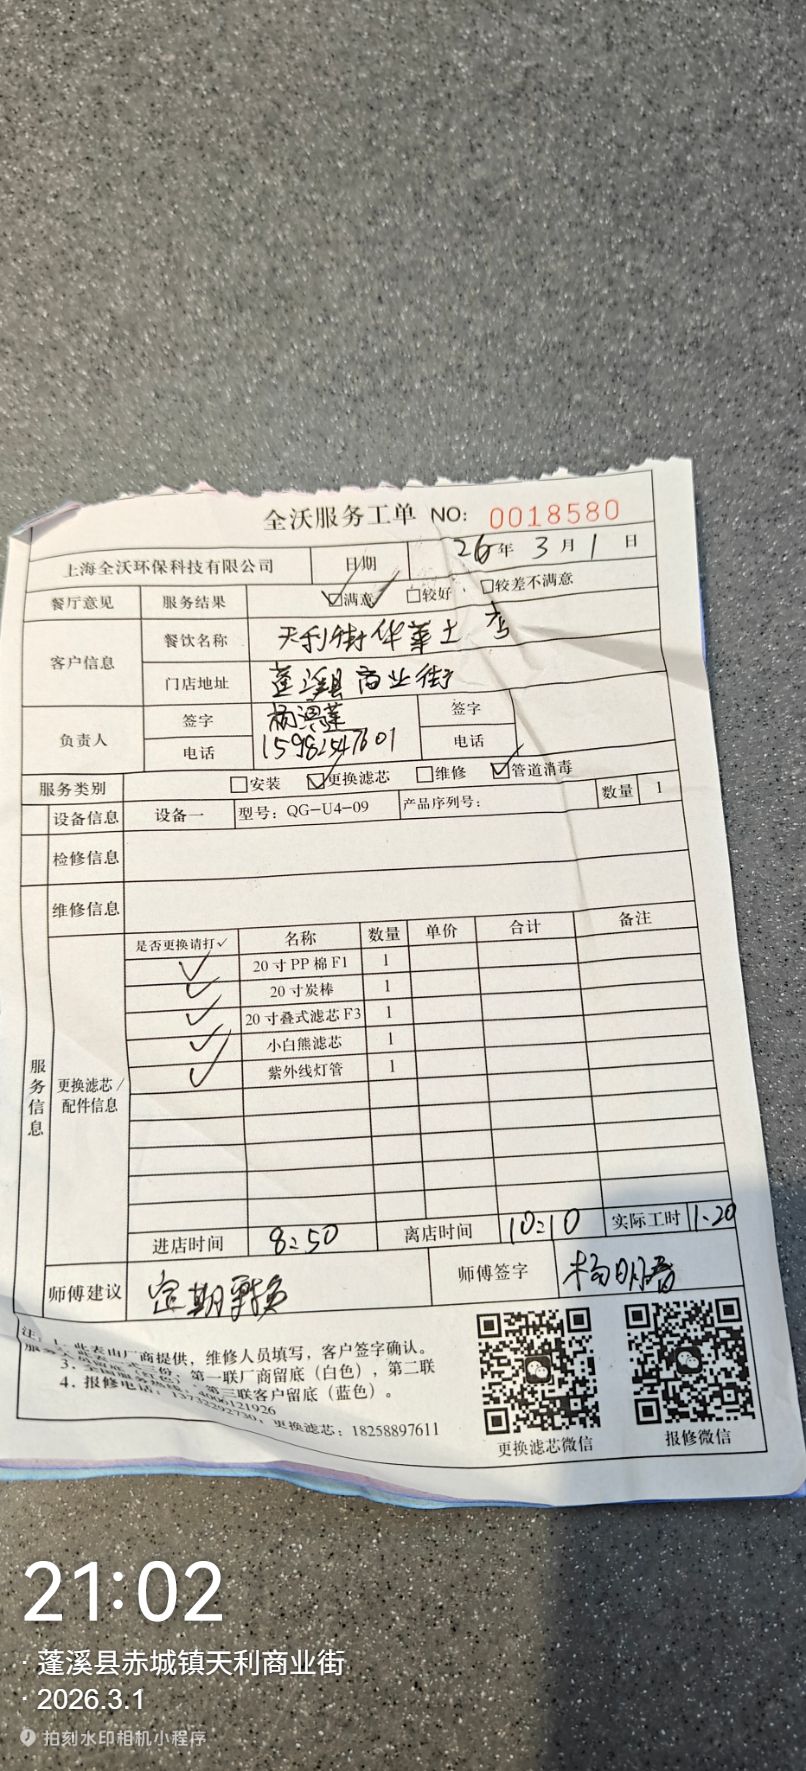 全沃服务工单 NO: 0018580
上海全沃环保科技有限公司 日期 26年 3月 1日
餐厅意见 服务结果 ☑满意 □较好 □较差不满意
客户信息 餐饮名称 天利街华莱士 店
门店地址 蓬溪县商业街
负责人 签字 签字
电话 15982547601 电话
服务类别 □安装 ☑更换滤芯 □维修 ☑管道消毒
设备信息 设备一 型号: QG-U4-09 产品序列号: 数量 1
检修信息
维修信息
服务信息 更换滤芯/配件信息
是否更换请打✓ 名称 数量 单价 合计 备注
✓ 20寸PP棉F1 1
✓ 20寸炭棒 1
✓ 20寸叠式滤芯F3 1
✓ 小白熊滤芯 1
✓ 紫外线灯管 1
进店时间 8:50 离店时间 10:10 实际工时 1.20
师傅建议 定期更换 师傅签字
注: 1、此表由厂商提供，维修人员填写，客户签字确认。
第一联厂商留底（白色），第二联
第三联客户留底（蓝色）。
4006121926
4．报修电话：13732292730；更换滤芯：18258897611
更换滤芯微信 报修微信
21:02
· 蓬溪县赤城镇天利商业街
· 2026.3.1
拍刻水印相机小程序